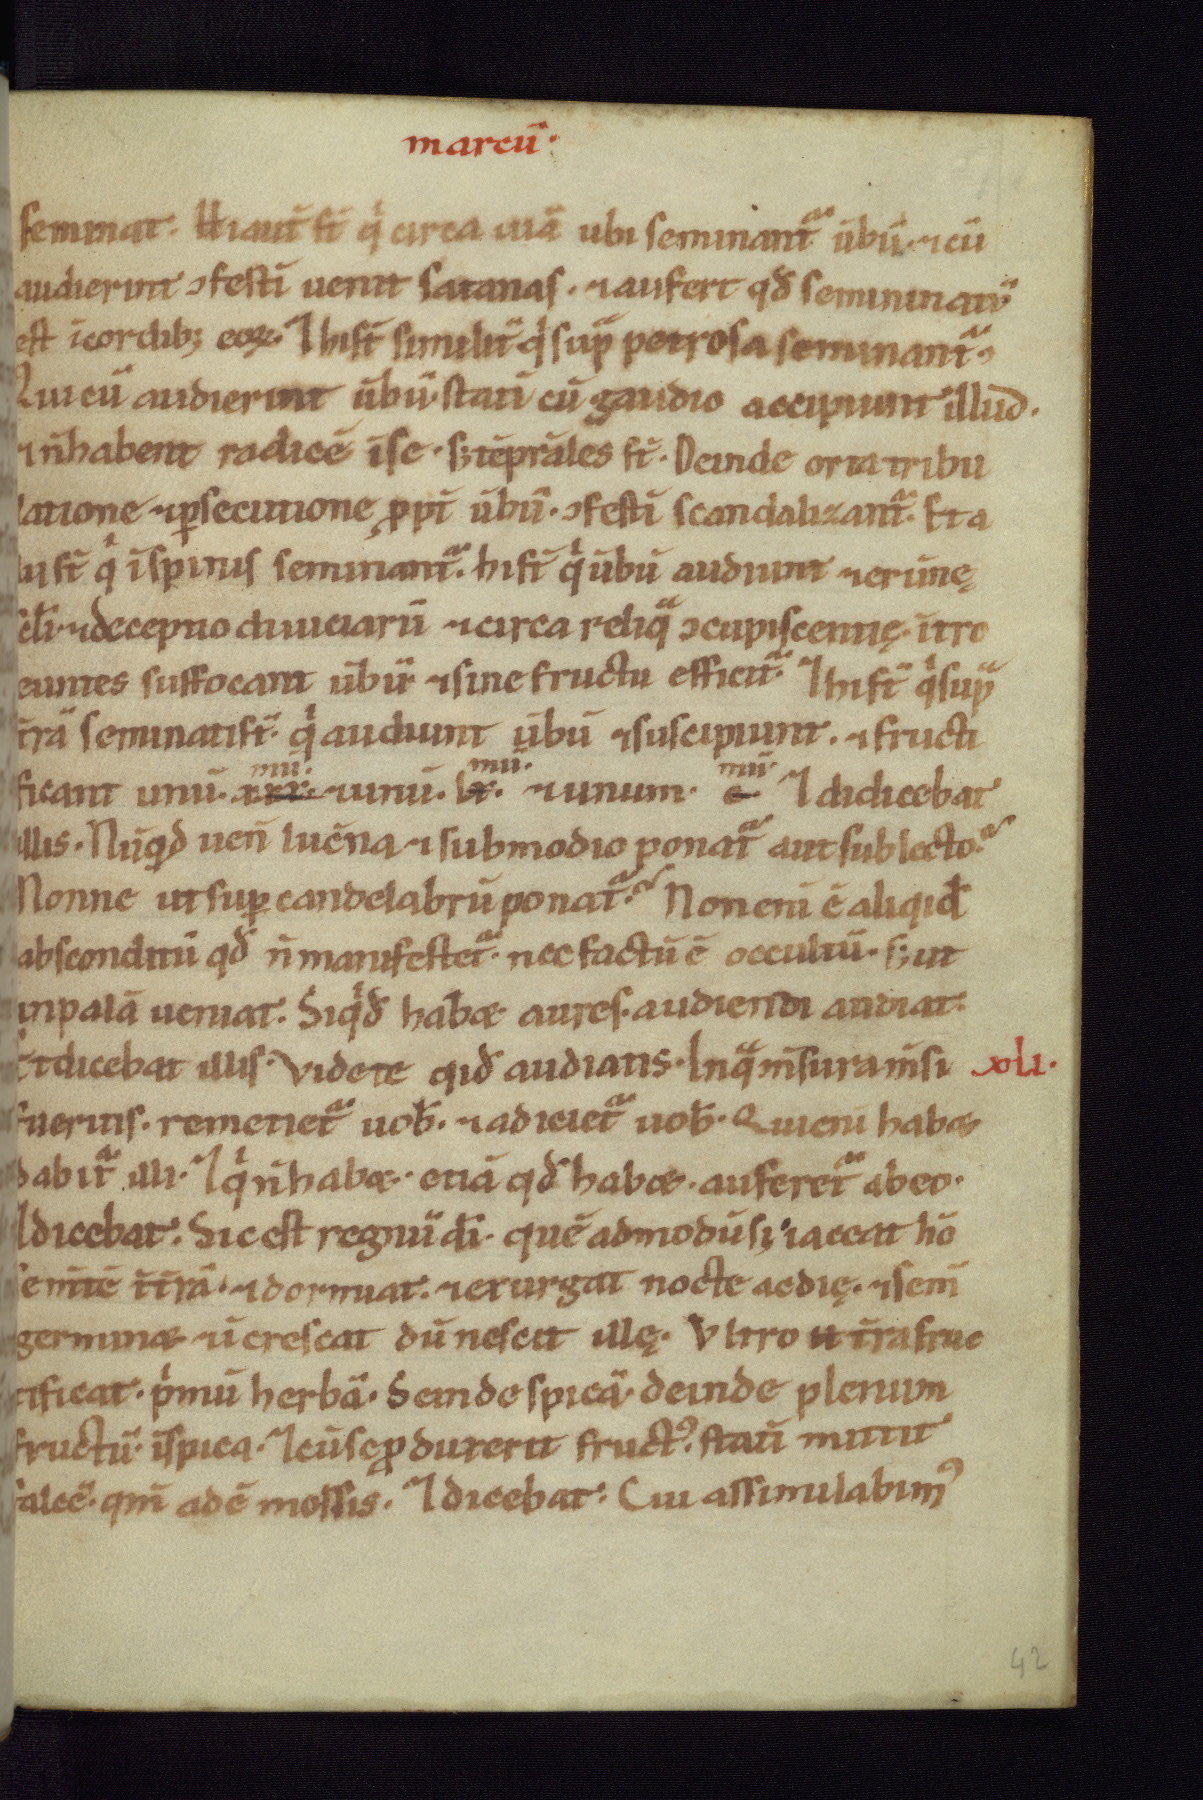 marcū·
seminat· Hi aut̄ st̄ q̇ circa uiā ubi seminant᷑ ūbū· ⁊ cū
audierint ↄfestī uenit satanas· ⁊ aufert qđ semininatū
est ī cordib; eoꝝ· ⁊ hi st̄ similit̄ q̇ sup̄ petrosa seminant᷑·
Qui cū audierint ūbū· statī cū gaudio accipiunt illud·
⁊ n̄ habent radicē ī se· s; tēprāles st̄· Deinde orta tribu
latione ⁊ ꝑsecutione ꝓpt̄ ūbū· ↄfestī scandalizant᷑· Et a
lii st̄ q̇ ī spinis seminant᷑· hi st̄ q̇ ūbū audiunt ⁊ erūnę
scl̄i· ⁊ deceptio diuiciarū ⁊ circa reliq̄ ↄcupiscentię· ītro
euntes suffocant ūbū ⁊ sine fructu efficit᷑· ⁊ hi st̄ q̇ sup̄
t̄rā seminati st̄· q̇ audiunt ūbū ⁊ suscipiunt· ⁊ fructi
ficant unū· xxx· ⁊ unū· lx· ⁊ unum· c· ⁊ dicebat
illis· Nūqd uen̄ lucēna ⁊ sub modio ponat᷑ aut sub lecto?
Nonne ut suꝑ candelabrū ponat᷑? Non enī ē aliqid
absconditū qđ n̄ manifestet᷑· nec factū ē occultū· s; ut
in palā ueniat· Siq̇đ habæ aures· audiendi audiat·
Et dicebat illis· Videte qid audiatis· In q̄ m̄sura m̄si xli·
fueritis· remetiet᷑ uob̄· ⁊ adiciet᷑ uob̄· Qui enī habæ
dabit᷑ illi· ⁊ q̇ n̄ habæ· etiā qđ habæ· auferet᷑ ab eo·
⁊ dicebat· Sic est regnū dī· quē admodū si iaceat hō
semtē ī t̄rā· ⁊ dormiat· ⁊ exurgat nocte ac die· ⁊ sem̄
germinæ ⁊ īcrescat dū nescit illę· Vltro t̄ra fruc
tificat· p̄mū herbā· Deinde spicā· deinde plenum
fructū ī spica· ⁊ cū se ꝓduxerit fruct᷒· statī mittit
falcē· qm̄ adē messis· ⁊ dicebat· Cui assimulabim᷒
42